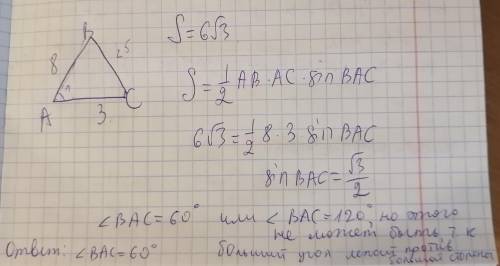 B
8
25
A
3
C
S = 6√3
S = 1/2 AB · AC · sin BAC
6√3 = 1/2 8 · 3 · sin BAC
sin BAC = √3/2
∠BAC = 60° или ∠BAC = 120°, но этого
не может быть т к
Ответ: ∠BAC = 60° больший угол лежит против
большей стороны